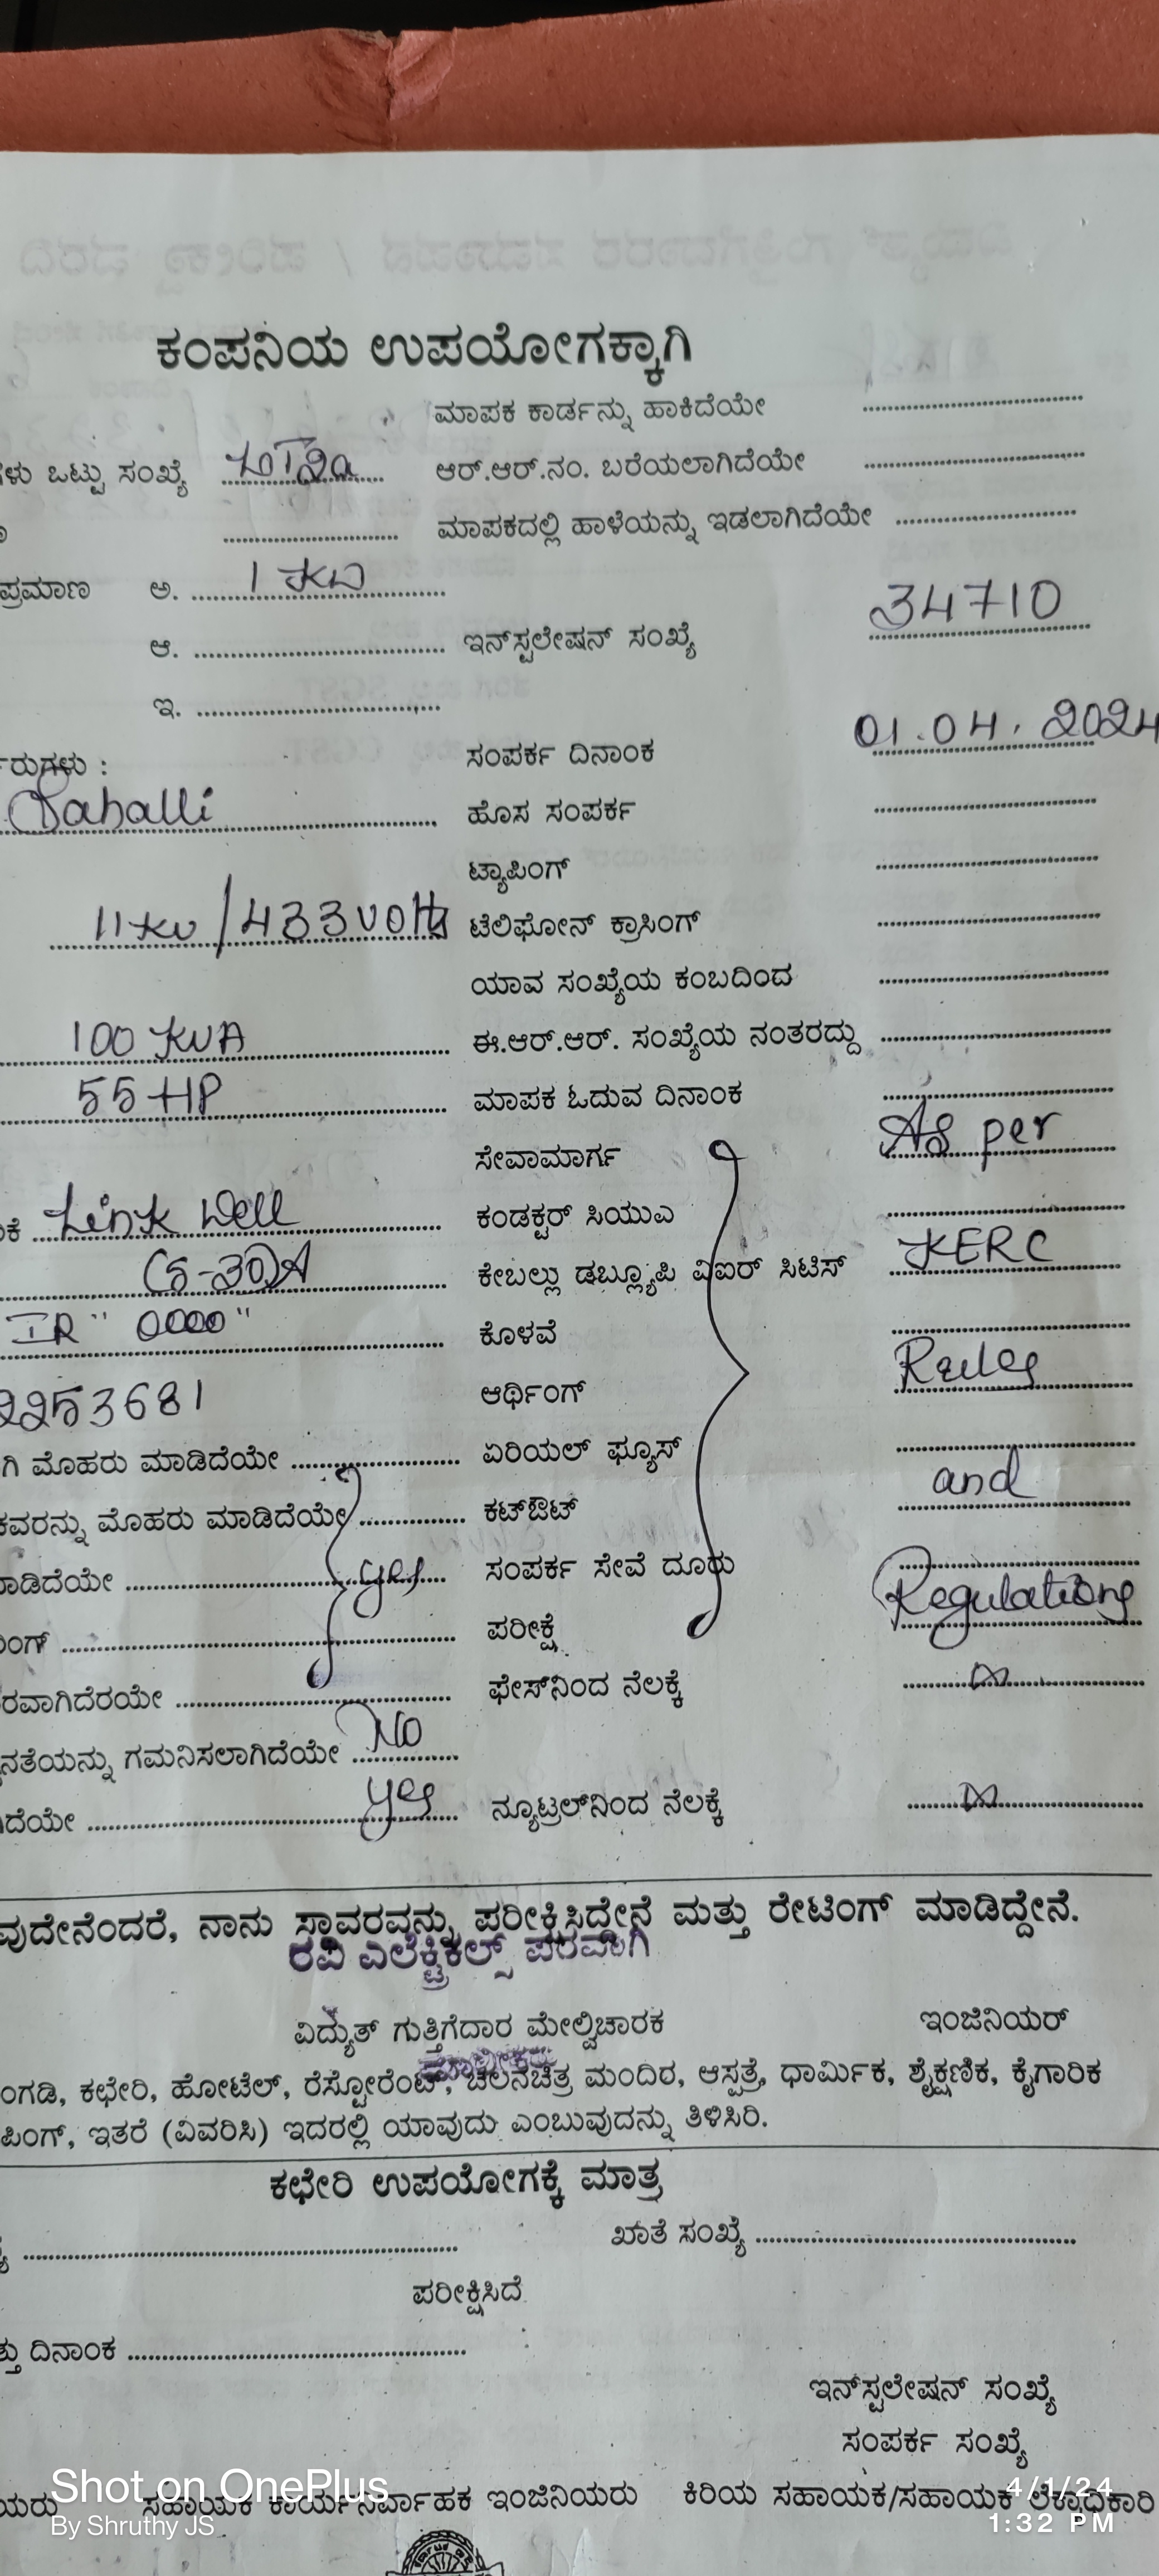 ಕಂಪನಿಯ ಉಪಯೋಗಕ್ಕಾಗಿ
ಮಾಪಕ ಕಾರ್ಡನ್ನು ಹಾಕಿದೆಯೇ
ಒಟ್ಟು ಸಂಖ್ಯೆ ಆರ್.ಆರ್.ನಂ. ಬರೆಯಲಾಗಿದೆಯೇ
ಮಾಪಕದಲ್ಲಿ ಹಾಳೆಯನ್ನು ಇಡಲಾಗಿದೆಯೇ
ಪ್ರಮಾಣ ಅ. 1 KW
ಆ. ಇನ್‌ಸ್ಟಲೇಷನ್ ಸಂಖ್ಯೆ 34710
ಇ.
ಸಂಪರ್ಕ ದಿನಾಂಕ 01.04.2024
ಹೊಸ ಸಂಪರ್ಕ
ಟ್ಯಾಪಿಂಗ್
11KV/433Volts ಟೆಲಿಫೋನ್ ಕ್ರಾಸಿಂಗ್
ಯಾವ ಸಂಖ್ಯೆಯ ಕಂಬದಿಂದ
100 KVA ಈ.ಆರ್.ಆರ್. ಸಂಖ್ಯೆಯ ನಂತರದ್ದು
55 HP ಮಾಪಕ ಓದುವ ದಿನಾಂಕ
ಸೇವಾಮಾರ್ಗ As per
Link Well ಕಂಡಕ್ಟರ್ ಸಿಯುಎ
ಕೇಬಲ್ಲು ಡಬ್ಲ್ಯೂಪಿ ವಿಐರ್ ಸಿಟಿಸ್ KERC
IR "0000" ಕೊಳವೆ
2253681 ಆರ್ಥಿಂಗ್ Rules
ಗಿ ಮೊಹರು ಮಾಡಿದೆಯೇ ಏರಿಯಲ್ ಫ್ಯೂಸ್
ಕವರನ್ನು ಮೊಹರು ಮಾಡಿದೆಯೇ ಕಟ್‌ಔಟ್ and
ಮಾಡಿದೆಯೇ yes ಸಂಪರ್ಕ ಸೇವೆ ದೂರು
ಪರೀಕ್ಷೆ Regulations
ಫೇಸ್‌ನಿಂದ ನೆಲಕ್ಕೆ ∞
ಗಮನಿಸಲಾಗಿದೆಯೇ No
yes ನ್ಯೂಟ್ರಲ್‌ನಿಂದ ನೆಲಕ್ಕೆ ∞
ನಾನು ಸ್ಥಾವರವನ್ನು ಪರೀಕ್ಷಿಸಿದ್ದೇನೆ ಮತ್ತು ರೇಟಿಂಗ್ ಮಾಡಿದ್ದೇನೆ.
ರವಿ ಎಲೆಕ್ಟ್ರಿಕಲ್ಸ್ ಪರವಾಗಿ
ವಿದ್ಯುತ್ ಗುತ್ತಿಗೆದಾರ ಮೇಲ್ವಿಚಾರಕ ಇಂಜಿನಿಯರ್
ಕಛೇರಿ, ಹೋಟೆಲ್, ರೆಸ್ಟೋರೆಂಟ್, ಚಲನಚಿತ್ರ ಮಂದಿರ, ಆಸ್ಪತ್ರೆ, ಧಾರ್ಮಿಕ, ಶೈಕ್ಷಣಿಕ, ಕೈಗಾರಿಕ
ಇತರೆ (ವಿವರಿಸಿ) ಇದರಲ್ಲಿ ಯಾವುದು ಎಂಬುವುದನ್ನು ತಿಳಿಸಿರಿ.
ಕಛೇರಿ ಉಪಯೋಗಕ್ಕೆ ಮಾತ್ರ
ಖಾತೆ ಸಂಖ್ಯೆ
ಪರೀಕ್ಷಿಸಿದೆ
ದಿನಾಂಕ
ಇನ್‌ಸ್ಟಲೇಷನ್ ಸಂಖ್ಯೆ
ಸಂಪರ್ಕ ಸಂಖ್ಯೆ
ಸಹಾಯಕ ಕಾರ್ಯನಿರ್ವಾಹಕ ಇಂಜಿನಿಯರು ಕಿರಿಯ ಸಹಾಯಕ/ಸಹಾಯಕ ಲೆಕ್ಕಾಧಿಕಾರಿ
Shot on OnePlus
By Shruthy JS
4/1/24
1:32 PM